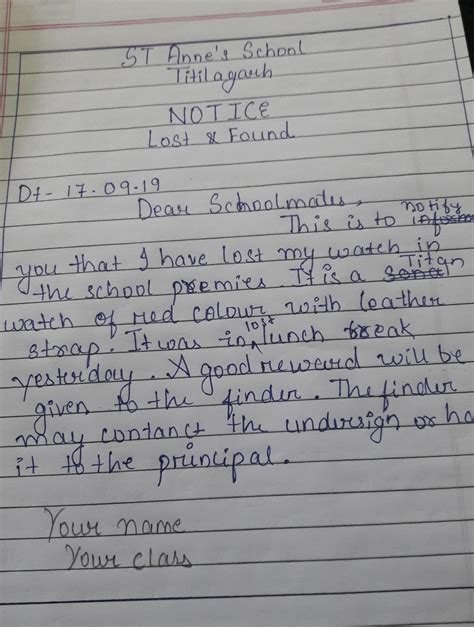 ST Anne's School
Titilagarh
NOTICE
Lost & Found
Dt- 17.09.19
Dear Schoolmates,
This is to notify
you that I have lost my watch in
the school premies. It is a Titan
watch of red colour with leather
strap. It was lost in lunch break
yesterday. A good reward will be
given to the finder. The finder
may contanct the undersign or ha
it to the principal.
Your name
Your class